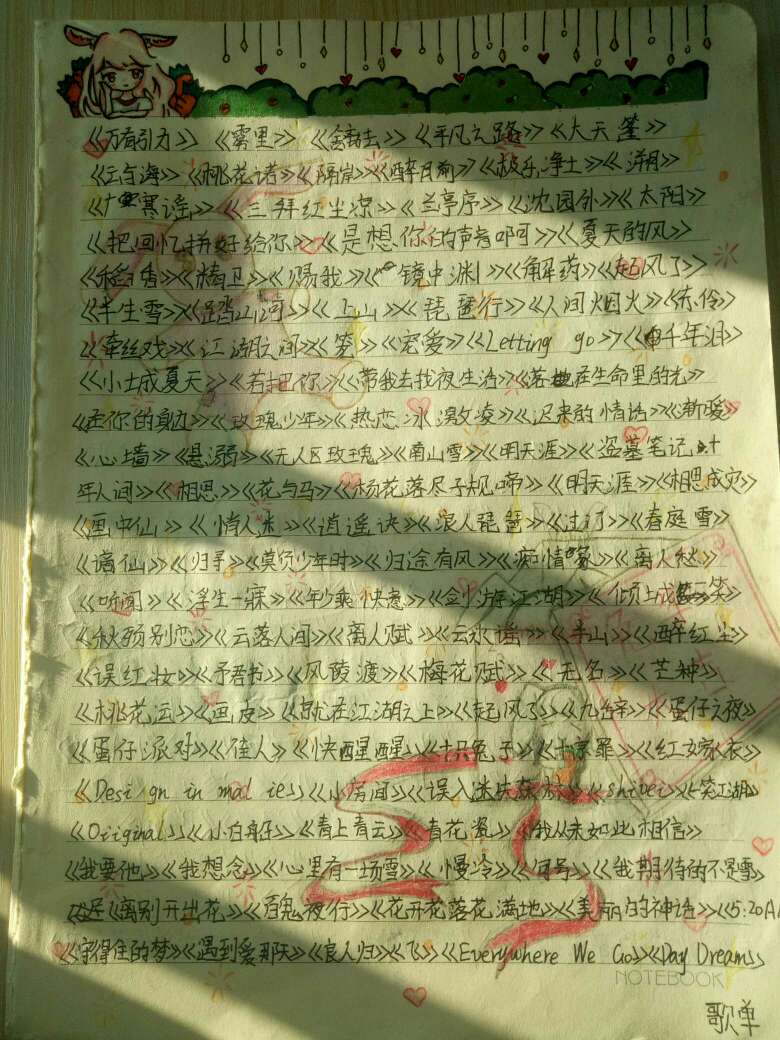 《万有引力》《雾里》《踏去》《平凡之路》《大天蓬》
《云与海》《桃花诺》《隔岸》《醉月前》《极乐净土》《洋月》
《广寒谣》《三拜红尘凉》《兰亭序》《沈园外》《太阳》
《把回忆拼好给你》《是想你的声音啊》《夏天的风》
《稻香》《精卫》《赐我》《镜中渊》《解药》《起风了》
《半生雪》《踏山河》《上山》《琵琶行》《人间烟火》《赤伶》
《牵丝戏》《江湖之间》《笼》《宠爱》《Letting go》《千年泪》
《小土成夏天》《若把你》《带我去找夜生活》《落在生命里的光》
《在你的身边》《玫瑰少年》《热恋冰激凌》《迟来的情话》《渐暖》
《心墙》《悬溺》《无人区玫瑰》《南山雪》《明天涯》《盗墓笔记.十
年人间》《相思》《花与马》《杨花落尽子规啼》《明天涯》《相思成灾》
《画中仙》《情人迷》《逍遥诀》《浪人琵琶》《过门》《春庭雪》
《谪仙》《归寻》《莫负少年时》《归途有风》《痴情冢》《离人愁》
《听闻》《浮生一寐》《年少乘快意》《剑海江湖》《倾城一笑》
《秋殇别恋》《云落人间》《离人赋》《云水谣》《半山》《醉红尘》
《误红妆》《予君书》《风陵渡》《梅花赋》《无名》《芒种》
《桃花运》《画皮》《就在江湖之上》《起风了》《九万字》《蛋仔之夜》
《蛋仔派对》《佳人》《快醒醒》《十只兔子》《十宗罪》《红嫁衣》
《Design in mal ie》《小房间》《误入迷失森林》《shibei》《一笑江湖》
《Original》《小白船》《青上青云》《青花瓷》《我从未如此相信》
《我要他》《我想念》《心里有一场雪》《慢冷》《句号》《我期待的不是雪》
《是离别开出花》《百鬼夜行》《花开花落花满地》《美丽的神话》《5:20AM
《守得住的梦》《遇到爱那天》《浪人归》《飞》《Everywhere We Go》《Day Dream》
NOTEBOOK
歌单